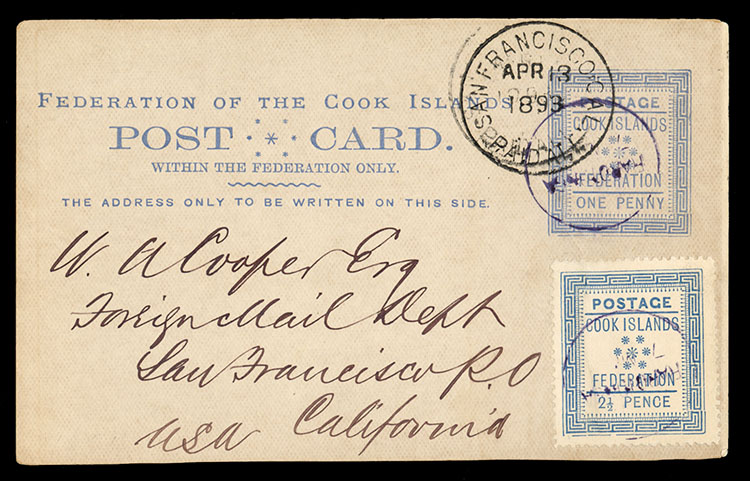 FEDERATION OF THE COOK ISLANDS
POST CARD.
WITHIN THE FEDERATION ONLY.
THE ADDRESS ONLY TO BE WRITTEN ON THIS SIDE.
SAN FRANCISCO, CAL
APR 13
1893
PAID ALL
POSTAGE
COOK ISLANDS
FEDERATION
ONE PENNY
W. A Cooper Esq
Foreign Mail Dept
San Francisco P.O
USA California
POSTAGE
COOK ISLANDS
FEDERATION
2½ PENCE